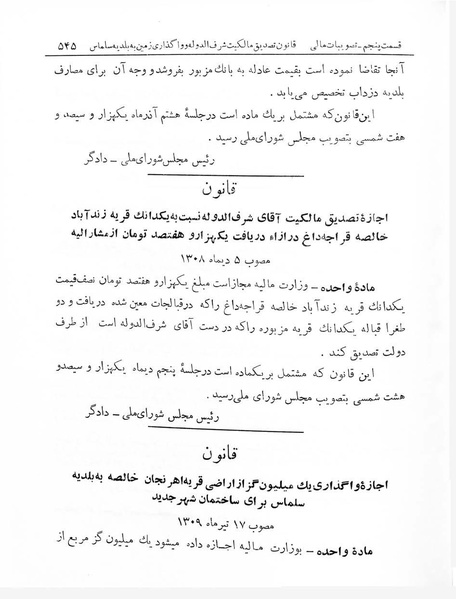 قسمت پنجم ـ تصویبات مالی    قانون تصدیق مالکیت شرف‌الدوله و واگذاری زمین به بلدیه سلماس    ۵۴۵
آنجا تقاضا نموده است بقیمت عادله به بانك مزبور بفروشد و وجه آن برای مصارف
بلدیه دزداب تخصیص می‌یابد .
این قانون که مشتمل بر یك ماده است در جلسهٔ هشتم آذر ماه یکهزار و سیصد و
هفت شمسی بتصویب مجلس شورای ملی رسید .
رئیس مجلس شورای ملی ـ دادگر
قانون
اجازهٔ تصدیق مالکیت آقای شرف‌الدوله نسبت به یکدانك قریه زندآباد
خالصه قراجه‌داغ در ازاء دریافت یکهزار و هفتصد تومان از مشارالیه
مصوب ۵ دیماه ۱۳۰۸
مادهٔ واحده ـ وزارت مالیه مجاز است مبلغ یکهزار و هفتصد تومان نصف قیمت
یکدانك قریه زندآباد خالصه قراجه‌داغ را که در قبالجات معین شده دریافت و دو
طغرا قباله یکدانك قریه مزبوره را که در دست آقای شرف‌الدوله است از طرف
دولت تصدیق کند .
این قانون که مشتمل بر یکماده است در جلسهٔ پنجم دیماه یکهزار و سیصدو
هشت شمسی بتصویب مجلس شورای ملی رسید .
رئیس مجلس شورای ملی ـ دادگر
قانون
اجازهٔ واگذاری یك میلیون گز از اراضی قریه اهرنجان خالصه به بلدیه
سلماس برای ساختمان شهر جدید
مصوب ۱۷ تیر ماه ۱۳۰۹
مادهٔ واحده ـ بوزارت مالیه اجازه داده میشود یك میلیون گز مربع از